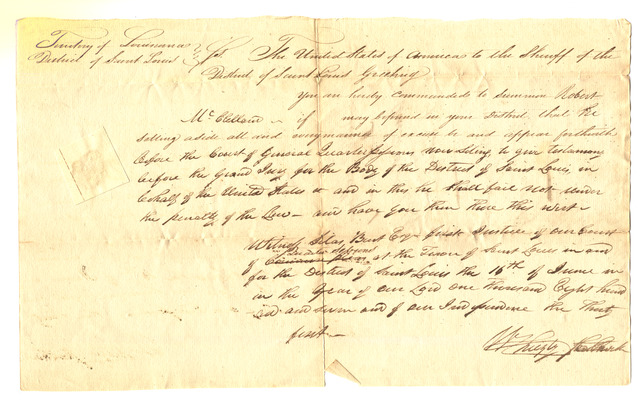 Territory of Louisiana
District of Saint Louis } Sct. The United States of America to the Sheriff of the
District of Saint Louis Greeting
You are hereby commanded to summon Robert
McClellan if may be found in your District that he
setting aside all and every manner of excuse be and appear forthwith
before the Court of General Quarter Sessions now sitting to give testimony
before the Grand Jury for the Body of the District of Saint Louis, in
behalf of the United States and in this he shall fail not under
the penalty of the Law and have you then there this writ
Witness Silas Bent Esqr Justice of our Court
of Quarter Sessions at the Town of Saint Louis in and
for the District of Saint Louis the 16th of June in
in the Year of our Lord one thousand Eight hund
red and seven and of our Independence the thirty
first